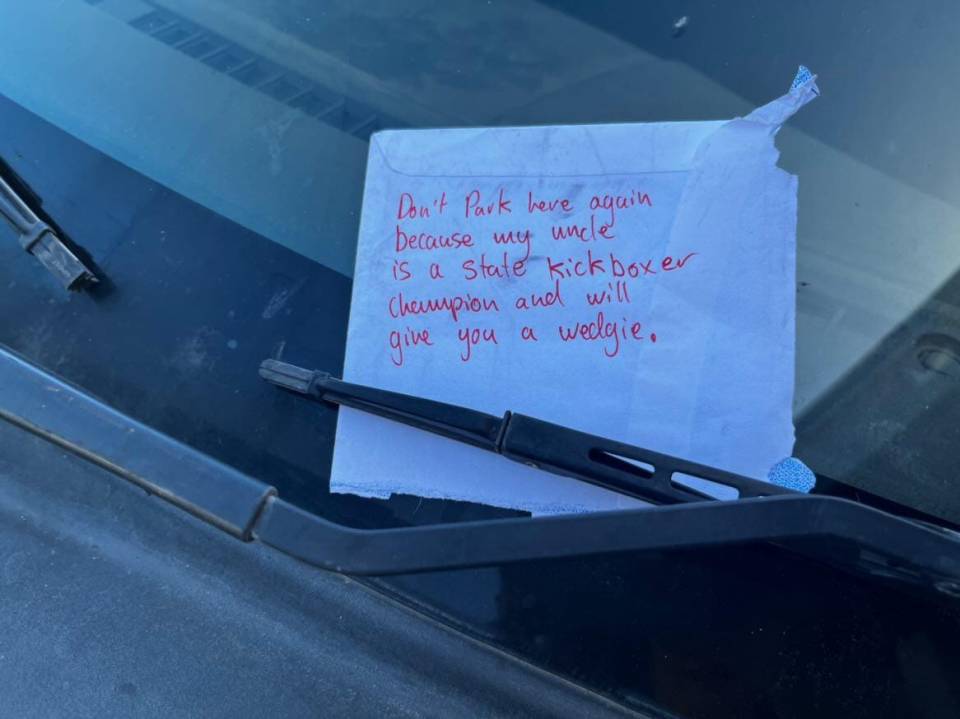 Don't Park here again
because my uncle
is a state kickboxer
champion and will
give you a wedgie.